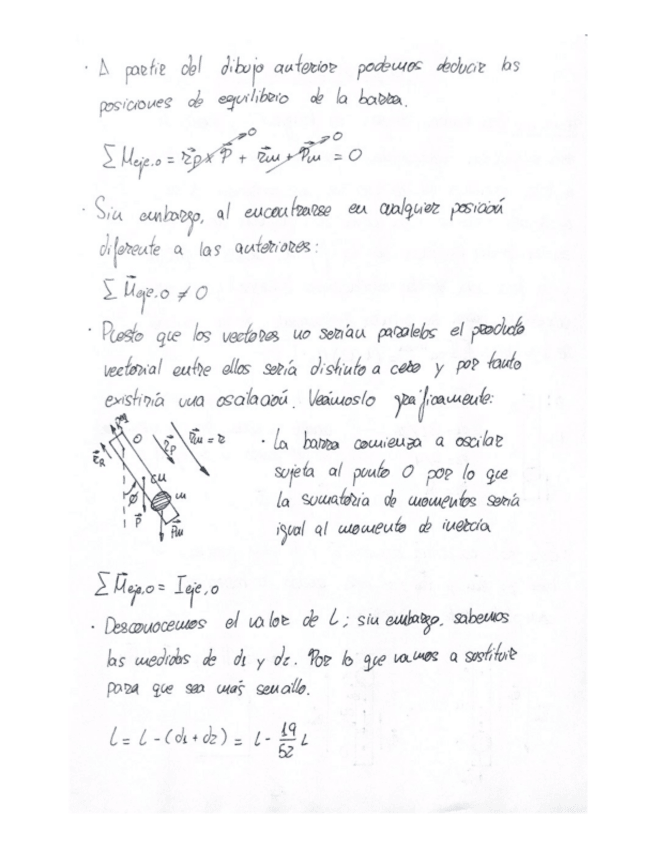 · A partir del dibujo anterior podemos deducir las
posiciones de equilibrio de la barra.
∑ Meje,o = r⃗p x P⃗ + r⃗m + P⃗m = 0
0 0
· Sin embargo, al encontrarse en cualquier posición
diferente a las anteriores:
∑ M⃗eje,o ≠ 0
· Puesto que los vectores no serían paralelos el producto
vectorial entre ellos sería distinto a cero y por tanto
existiría una oscilación. Veámoslo gráficamente:
r⃗R O r⃗p r⃗m = r
CM m
ϕ
P⃗ P⃗m
· La barra comienza a oscilar
sujeta al punto O por lo que
la sumatoria de momentos sería
igual al momento de inercia
∑ M⃗eje,o = Ieje,o
· Desconocemos el valor de L; sin embargo, sabemos
las medidas de d1 y d2. Por lo que vamos a sostituir
para que sea más sencillo.
L = L - (d1 + d2) = L - 19/52 L